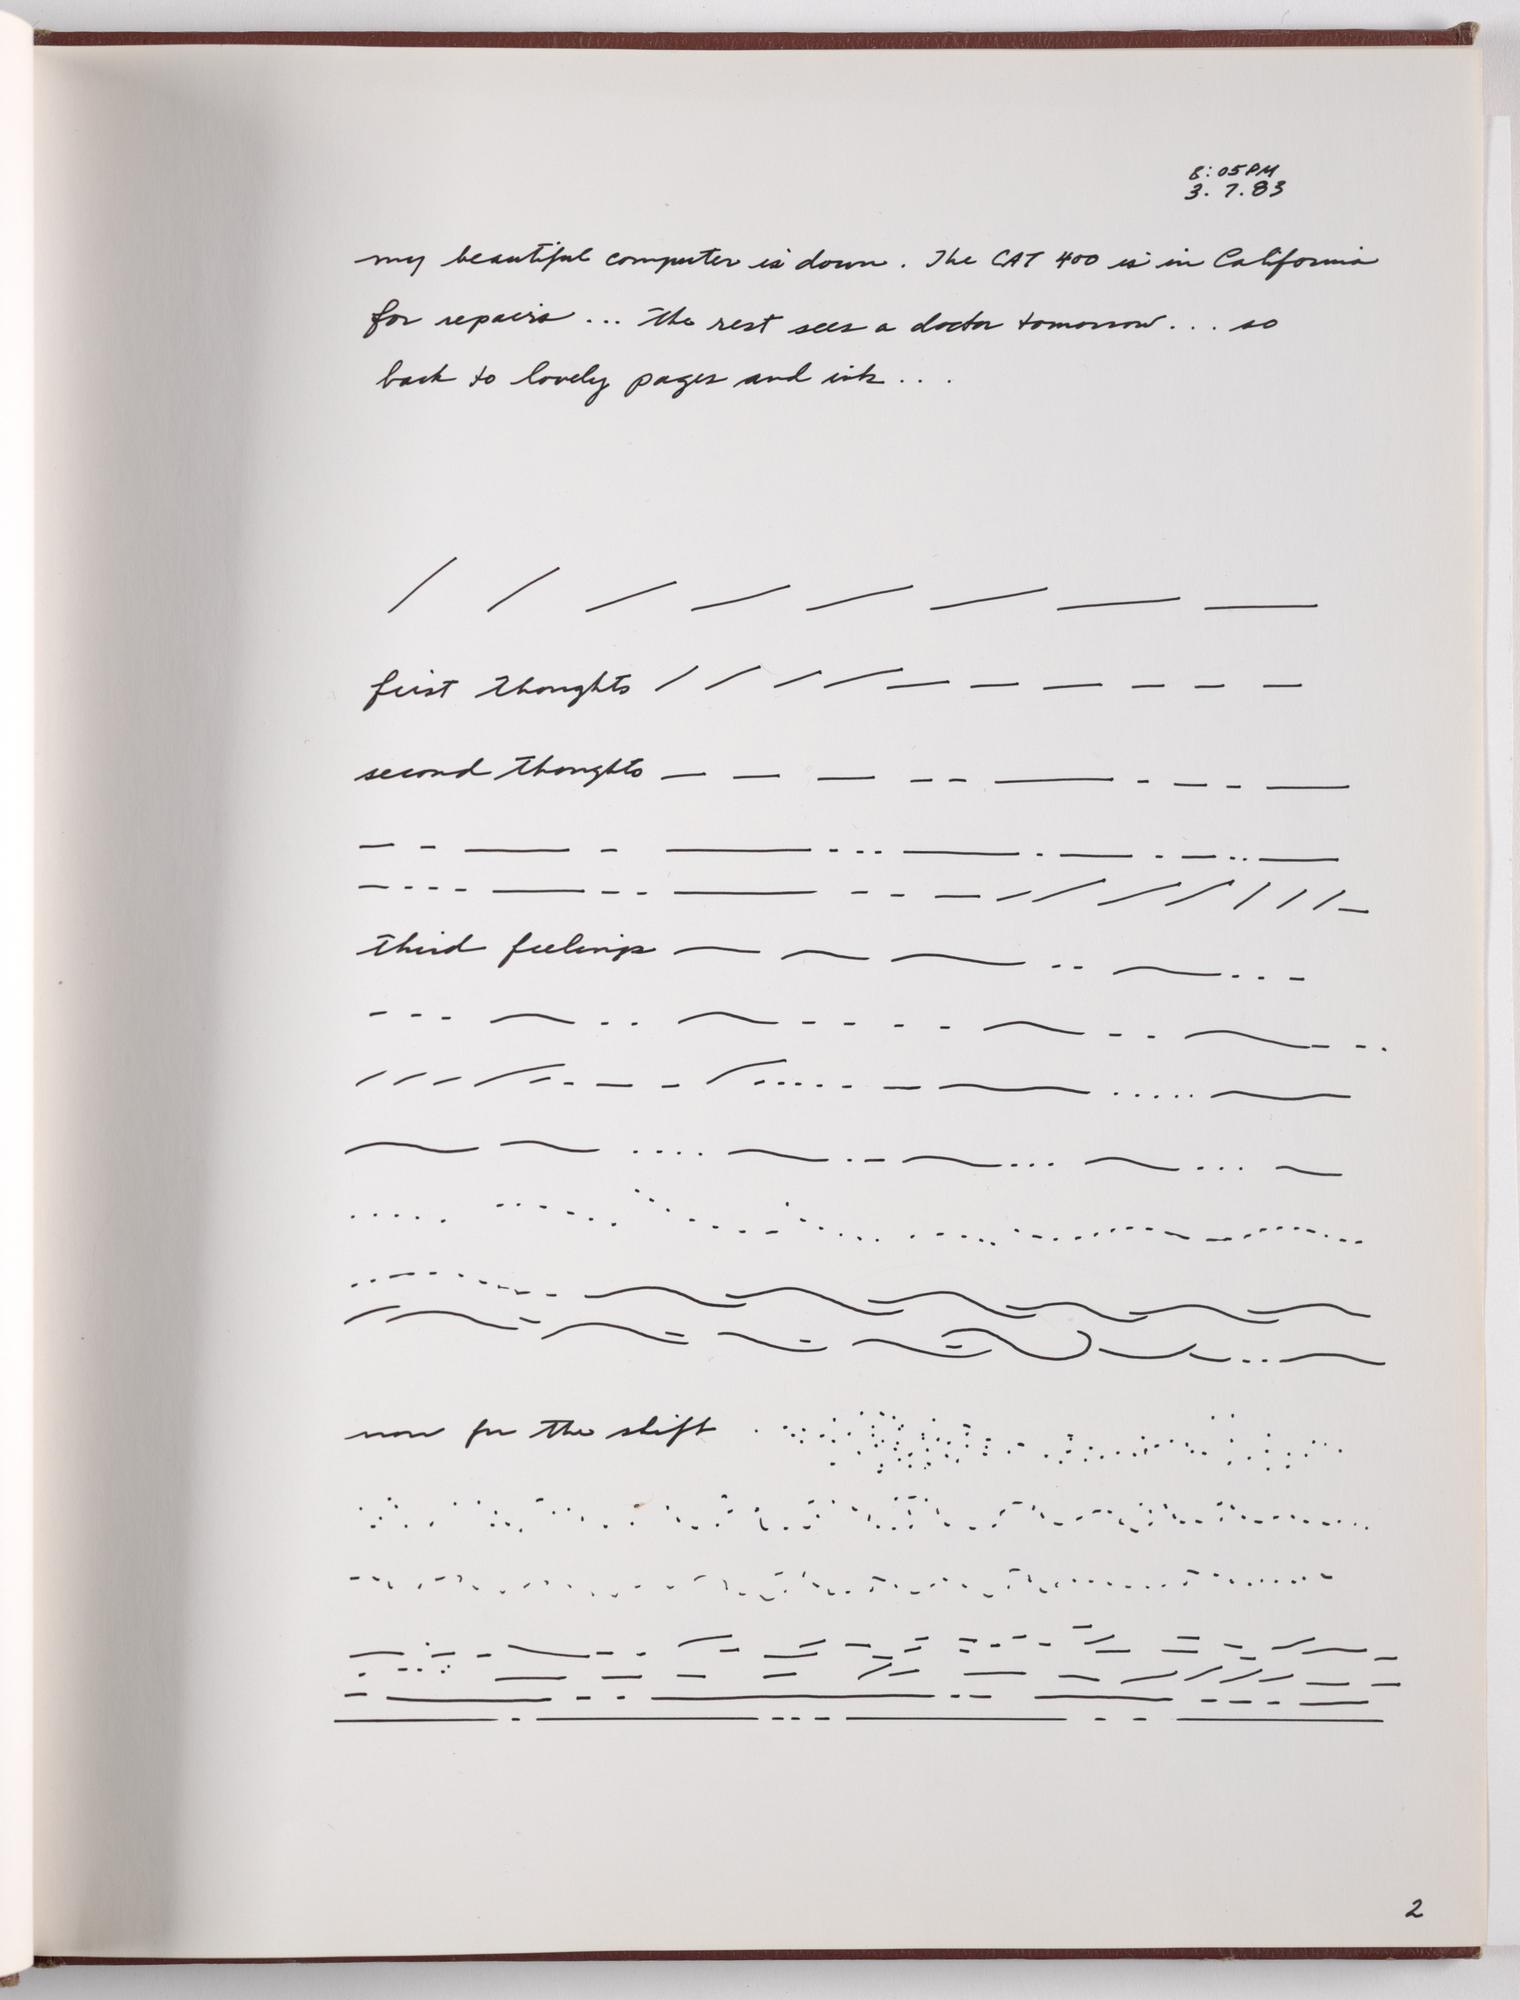 8:05PM
3.7.83
my beautiful computer is down. The CAT 400 is in California
for repairs ... the rest sees a doctor tomorrow... so
back to lovely pages and ink...
first thoughts
second thoughts
third feelings
now for the shift
2